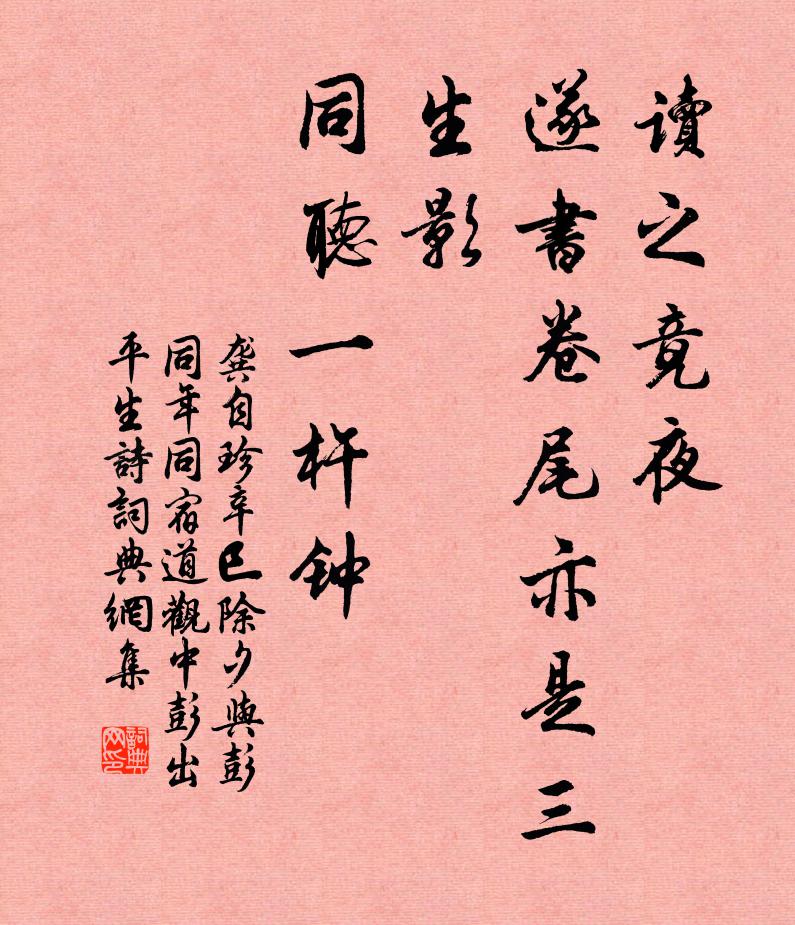 讀之竟夜
遂書卷尾亦是三
生影
同聽一杵钟
龔自珍辛巳除夕與彭
同年同宿道觀中彭出
平生詩詞典網集
詞典
网印